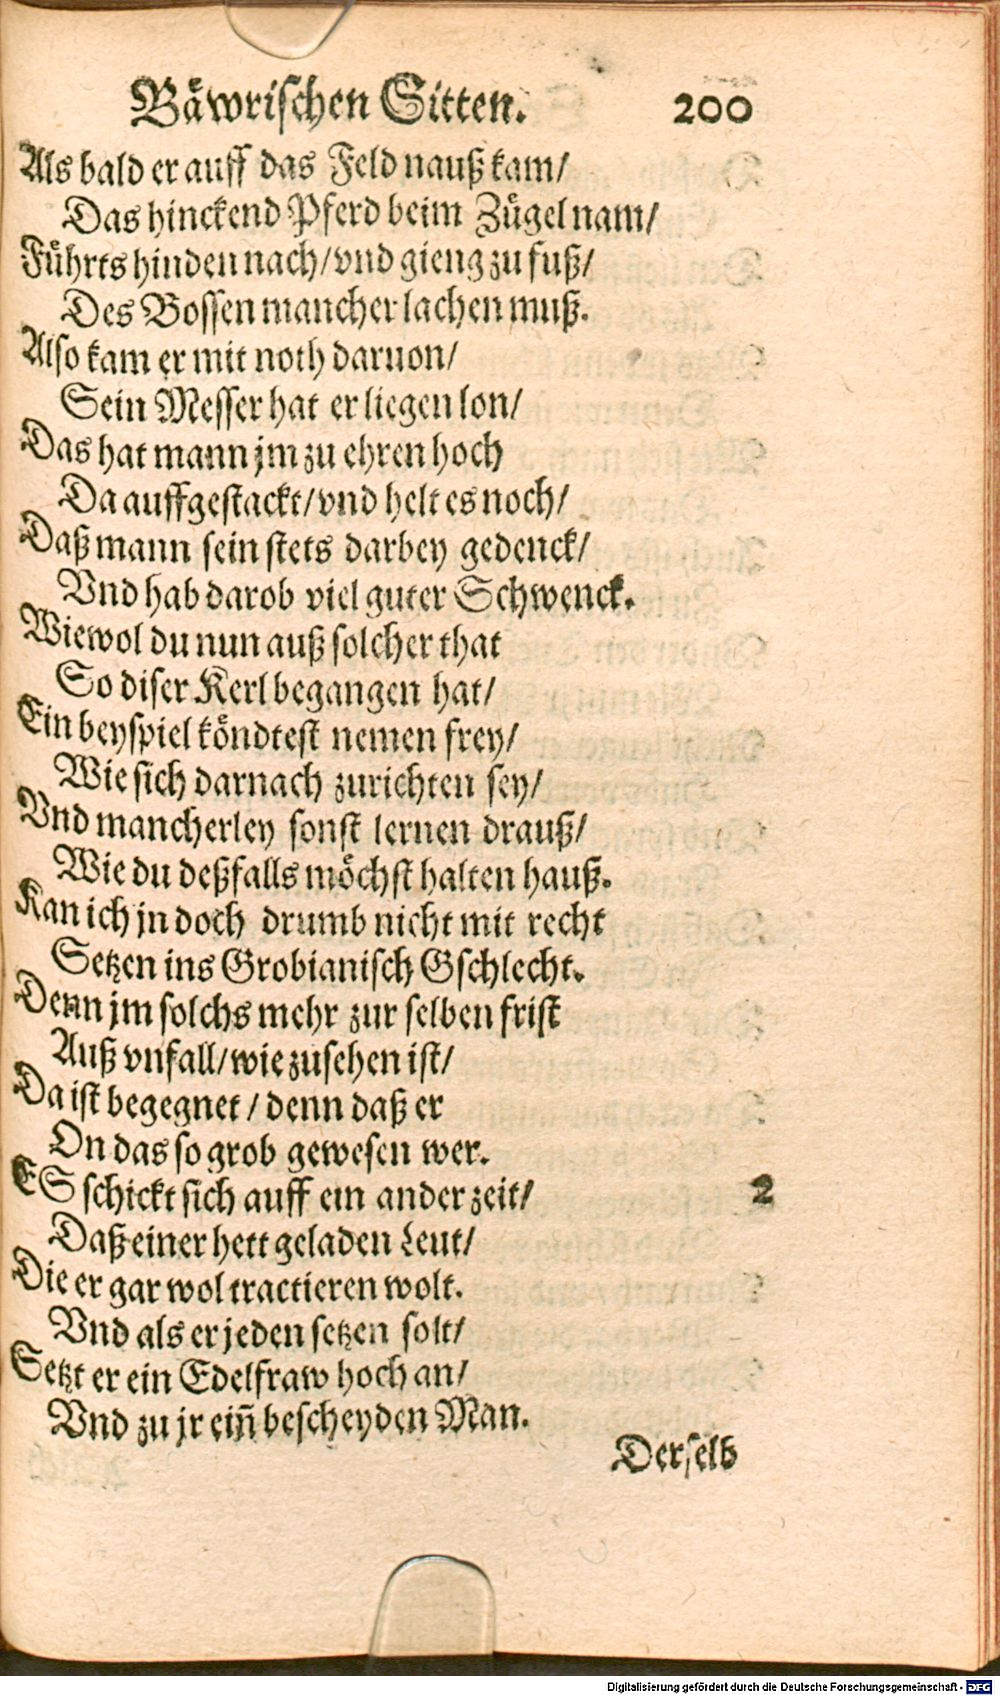 Bäwrischen Sitten. 200
Als bald er auff das Feld nauß kam/
Das hinckend Pferd beim Zügel nam/
Führts hinden nach/vnd gieng zu fuß/
Des Bossen mancher lachen muß.
Also kam er mit noth daruon/
Sein Messer hat er liegen lon/
Das hat mann jm zu ehren hoch
Da auffgestackt/vnd helt es noch/
Daß mann sein stets darbey gedenck/
Vnd hab darob viel guter Schwenck.
Wiewol du nun auß solcher that
So diser Kerl begangen hat/
Ein beyspiel köndtest nemen frey/
Wie sich darnach zurichten sey/
Vnd mancherley sonst lernen drauß/
Wie du deßfalls möchst halten hauß.
Kan ich jn doch drumb nicht mit recht
Setzen ins Grobianisch Gschlecht.
Denn jm solchs mehr zur selben frist
Auß vnfall/wie zusehen ist/
Da ist begegnet/denn daß er
On das so grob gewesen wer.
ES schickt sich auff ein ander zeit/ 2
Daß einer hett geladen Leut/
Die er gar wol tractieren wolt.
Vnd als er jeden setzen solt/
Setzt er ein Edelfraw hoch an/
Vnd zu jr eiñ bescheyden Man.
Derselb
Digitalisierung gefördert durch die Deutsche Forschungsgemeinschaft - DFG